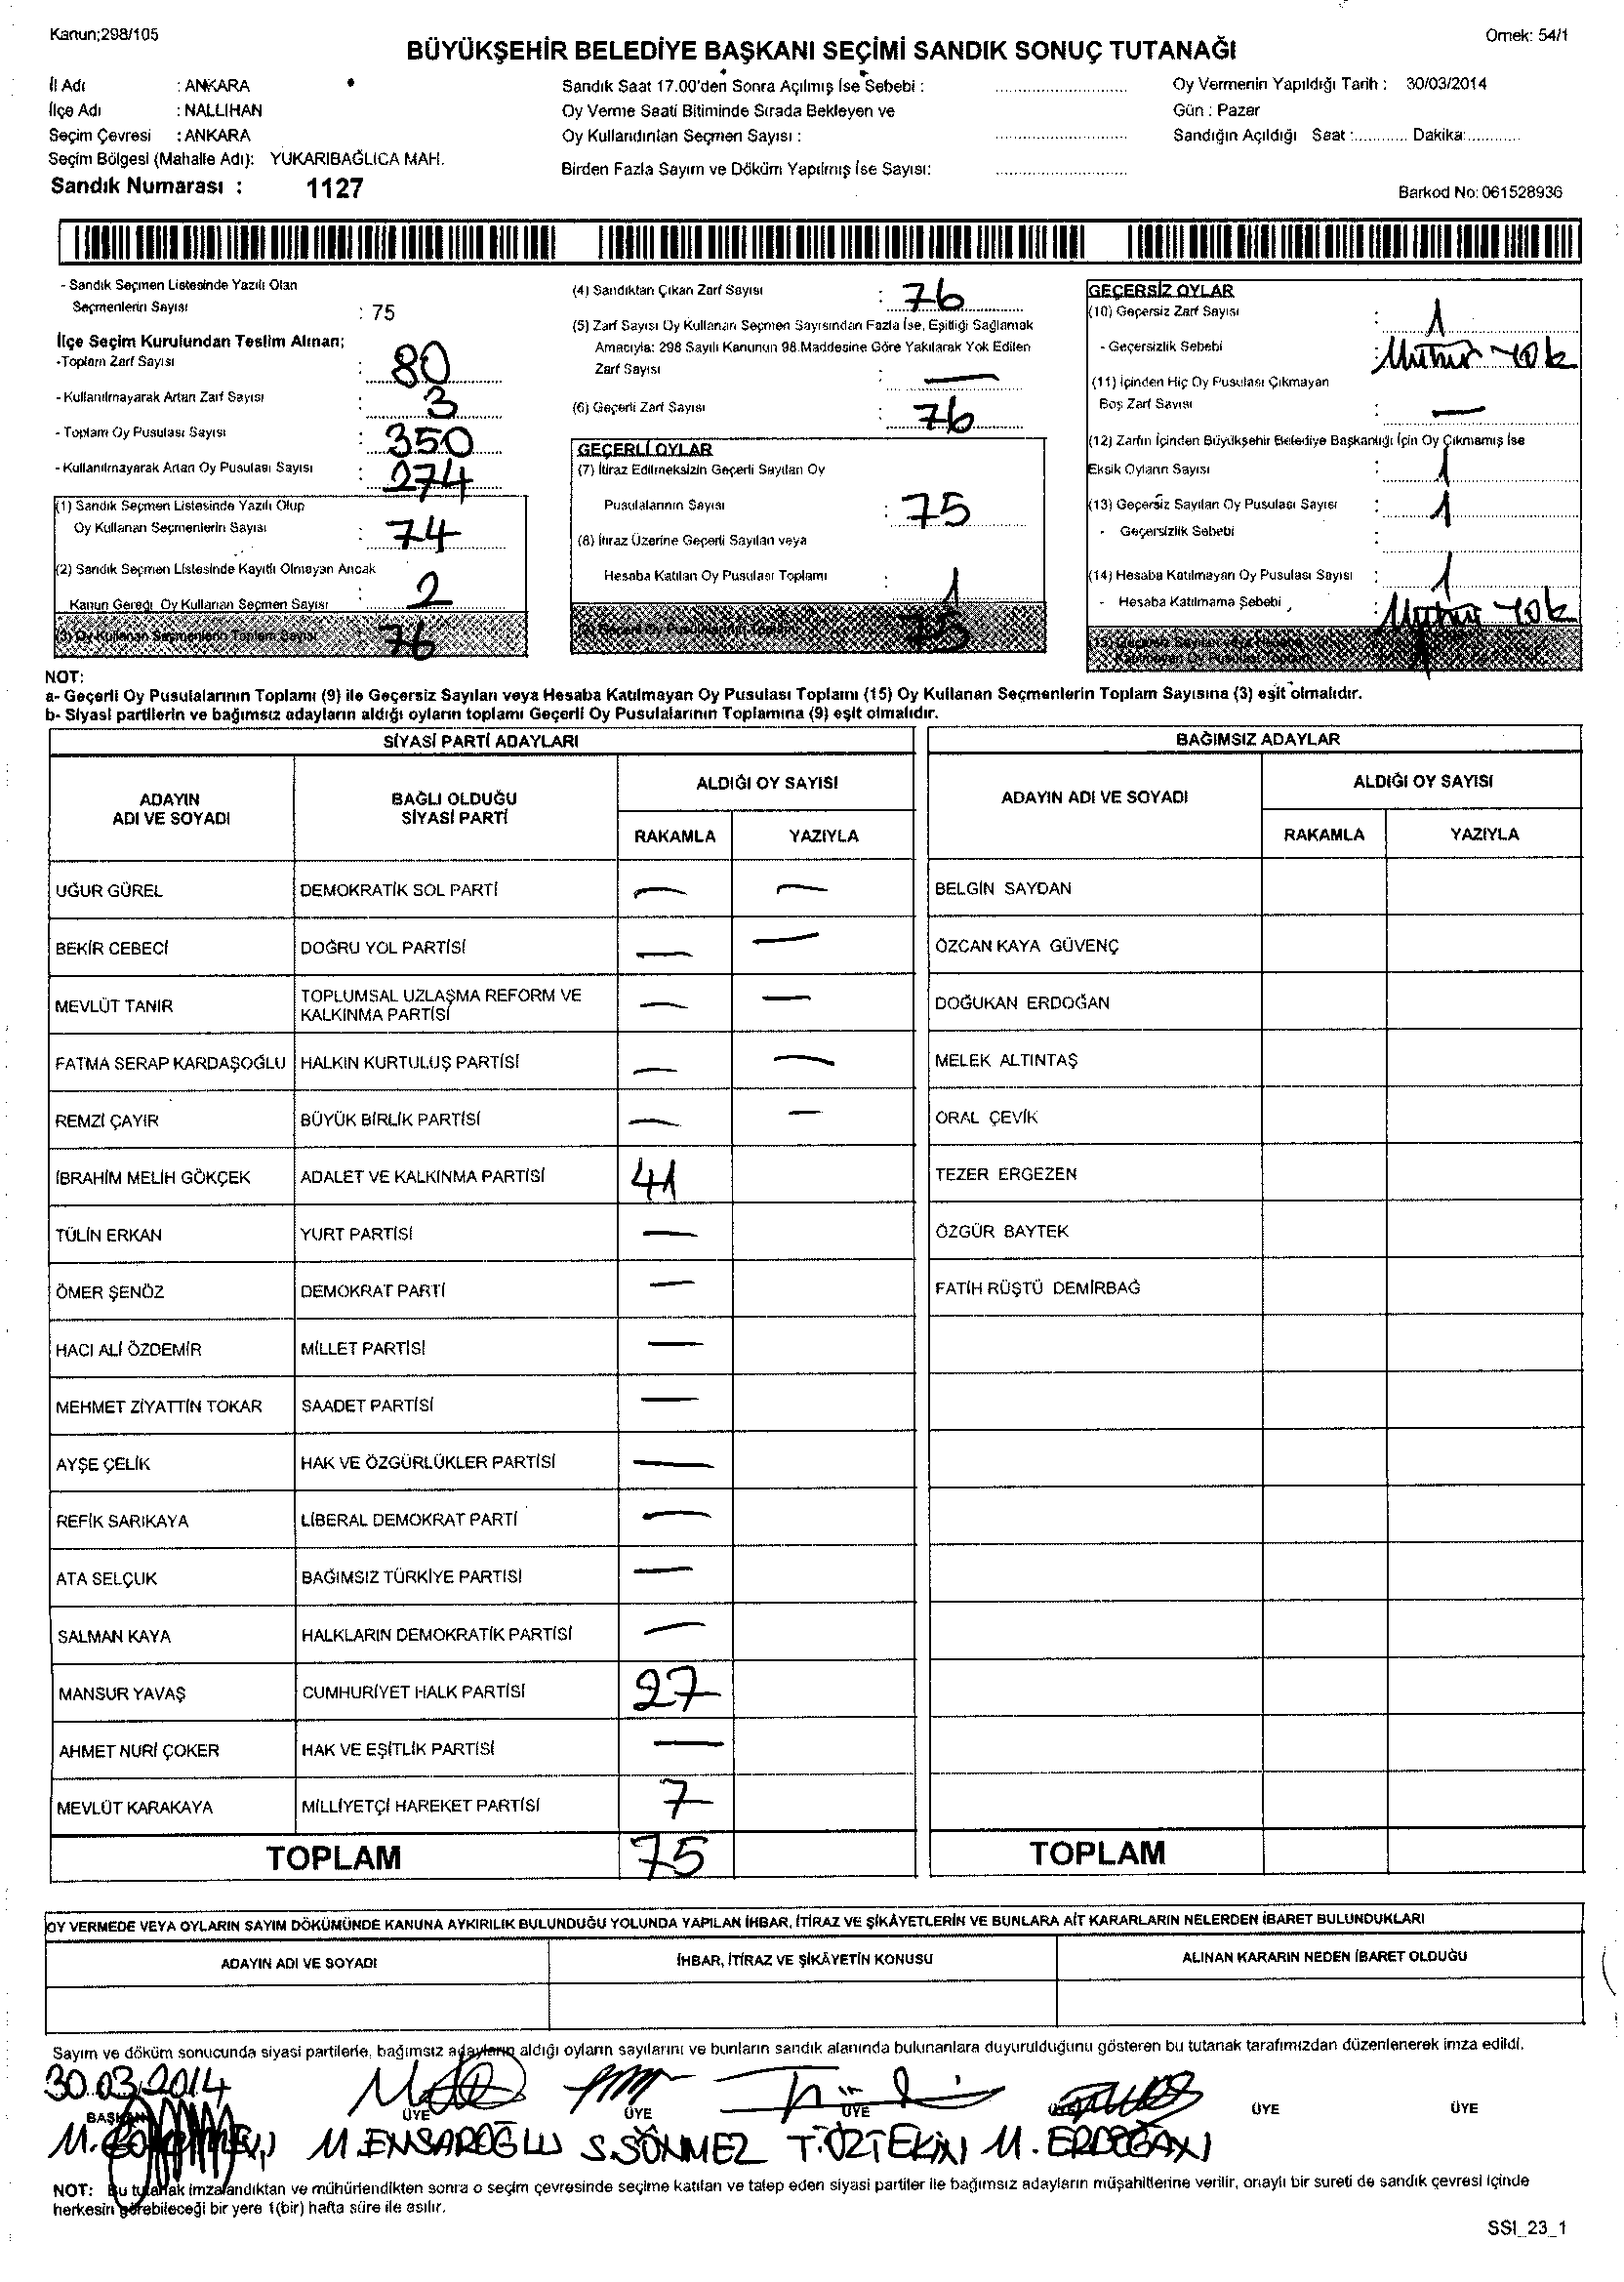 Kanun;298/105
Örnek: 54/1
BÜYÜKŞEHİR BELEDİYE BAŞKANI SEÇİMİ SANDIK SONUÇ TUTANAĞI
İl Adı : ANKARA
İlçe Adı : NALLIHAN
Seçim Çevresi : ANKARA
Seçim Bölgesi (Mahalle Adı): YUKARIBAĞLICA MAH.
Sandık Numarası : 1127
Sandık Saat 17.00'den Sonra Açılmış İse Sebebi :
Oy Verme Saati Bitiminde Sırada Bekleyen ve
Oy Kullandırılan Seçmen Sayısı :
Birden Fazla Sayım ve Döküm Yapılmış İse Sayısı:
Oy Vermenin Yapıldığı Tarih : 30/03/2014
Gün : Pazar
Sandığın Açıldığı Saat :............ Dakika:............
Barkod No: 061528936
- Sandık Seçmen Listesinde Yazılı Olan
Seçmenlerin Sayısı : 75
İlçe Seçim Kurulundan Teslim Alınan;
-Toplam Zarf Sayısı : 80
- Kullanılmayarak Artan Zarf Sayısı : 3
- Toplam Oy Pusulası Sayısı : 350
- Kullanılmayarak Artan Oy Pusulası Sayısı : 274
(1) Sandık Seçmen Listesinde Yazılı Olup
Oy Kullanan Seçmenlerin Sayısı : 74
(2) Sandık Seçmen Listesinde Kayıtlı Olmayan Ancak
Kanun Gereği Oy Kullanan Seçmen Sayısı : 2
(3) Oy Kullanan Seçmenlerin Toplam Sayısı : 76
(4) Sandıktan Çıkan Zarf Sayısı : 76
(5) Zarf Sayısı Oy Kullanan Seçmen Sayısından Fazla İse, Eşitliği Sağlamak
Amacıyla: 298 Sayılı Kanunun 98.Maddesine Göre Yakılarak Yok Edilen
Zarf Sayısı : —
(6) Geçerli Zarf Sayısı : 76
GEÇERLİ OYLAR
(7) İtiraz Edilmeksizin Geçerli Sayılan Oy
Pusulalarının Sayısı : 75
(8) İtiraz Üzerine Geçerli Sayılan veya
Hesaba Katılan Oy Pusulası Toplamı : 1
(9) Geçerli Oy Pusulalarının Toplamı 75
GEÇERSİZ OYLAR
(10) Geçersiz Zarf Sayısı : 1
- Geçersizlik Sebebi : Mühür Yok
(11) İçinden Hiç Oy Pusulası Çıkmayan
Boş Zarf Sayısı : —
(12) Zarfın İçinden Büyükşehir Belediye Başkanlığı İçin Oy Çıkmamış İse
Eksik Oyların Sayısı : 1
(13) Geçersiz Sayılan Oy Pusulası Sayısı : 1
- Geçersizlik Sebebi :
(14) Hesaba Katılmayan Oy Pusulası Sayısı : 1
- Hesaba Katılmama Sebebi : Mühür Yok
NOT:
a- Geçerli Oy Pusulalarının Toplamı (9) ile Geçersiz Sayılan veya Hesaba Katılmayan Oy Pusulası Toplamı (15) Oy Kullanan Seçmenlerin Toplam Sayısına (3) eşit olmalıdır.
b- Siyasi partilerin ve bağımsız adayların aldığı oyların toplamı Geçerli Oy Pusulalarının Toplamına (9) eşit olmalıdır.
SİYASİ PARTİ ADAYLARI
ADAYIN ADI VE SOYADI BAĞLI OLDUĞU SİYASİ PARTİ ALDIĞI OY SAYISI
RAKAMLA YAZIYLA
UĞUR GÜREL DEMOKRATİK SOL PARTİ — —
BEKİR CEBECİ DOĞRU YOL PARTİSİ — —
MEVLÜT TANIR TOPLUMSAL UZLAŞMA REFORM VE KALKINMA PARTİSİ — —
FATMA SERAP KARDAŞOĞLU HALKIN KURTULUŞ PARTİSİ — —
REMZİ ÇAYIR BÜYÜK BİRLİK PARTİSİ — —
İBRAHİM MELİH GÖKÇEK ADALET VE KALKINMA PARTİSİ 41
TÜLİN ERKAN YURT PARTİSİ —
ÖMER ŞENÖZ DEMOKRAT PARTİ —
HACI ALİ ÖZDEMİR MİLLET PARTİSİ —
MEHMET ZİYATTİN TOKAR SAADET PARTİSİ —
AYŞE ÇELİK HAK VE ÖZGÜRLÜKLER PARTİSİ —
REFİK SARIKAYA LİBERAL DEMOKRAT PARTİ —
ATA SELÇUK BAĞIMSIZ TÜRKİYE PARTİSİ —
SALMAN KAYA HALKLARIN DEMOKRATİK PARTİSİ —
MANSUR YAVAŞ CUMHURİYET HALK PARTİSİ 27
AHMET NURİ ÇOKER HAK VE EŞİTLİK PARTİSİ —
MEVLÜT KARAKAYA MİLLİYETÇİ HAREKET PARTİSİ 7
TOPLAM 75
BAĞIMSIZ ADAYLAR
ADAYIN ADI VE SOYADI ALDIĞI OY SAYISI
RAKAMLA YAZIYLA
BELGİN SAYDAN
ÖZCAN KAYA GÜVENÇ
DOĞUKAN ERDOĞAN
MELEK ALTINTAŞ
ORAL ÇEVİK
TEZER ERGEZEN
ÖZGÜR BAYTEK
FATİH RÜŞTÜ DEMİRBAĞ
TOPLAM
OY VERMEDE VEYA OYLARIN SAYIM DÖKÜMÜNDE KANUNA AYKIRILIK BULUNDUĞU YOLUNDA YAPILAN İHBAR, İTİRAZ VE ŞİKÂYETLERİN VE BUNLARA AİT KARARLARIN NELERDEN İBARET BULUNDUKLARI
ADAYIN ADI VE SOYADI İHBAR, İTİRAZ VE ŞİKÂYETİN KONUSU ALINAN KARARIN NEDEN İBARET OLDUĞU
Sayım ve döküm sonucunda siyasi partilerle, bağımsız adayların aldığı oyların sayılarını ve bunların sandık alanında bulunanlara duyurulduğunu gösteren bu tutanak tarafımızdan düzenlenerek imza edildi.
30.03.2014
BAŞKAN ÜYE ÜYE ÜYE ÜYE ÜYE ÜYE
M.ENSAROĞLU S.SÖNMEZ T.ÖZTEKİN M. ERDOĞAN
NOT: Bu tutanak imzalandıktan ve mühürlendikten sonra o seçim çevresinde seçime katılan ve talep eden siyasi partiler ile bağımsız adayların müşahitlerine verilir, onaylı bir sureti de sandık çevresi içinde
herkesin görebileceği bir yere 1(bir) hafta süre ile asılır.
SSI_23_1